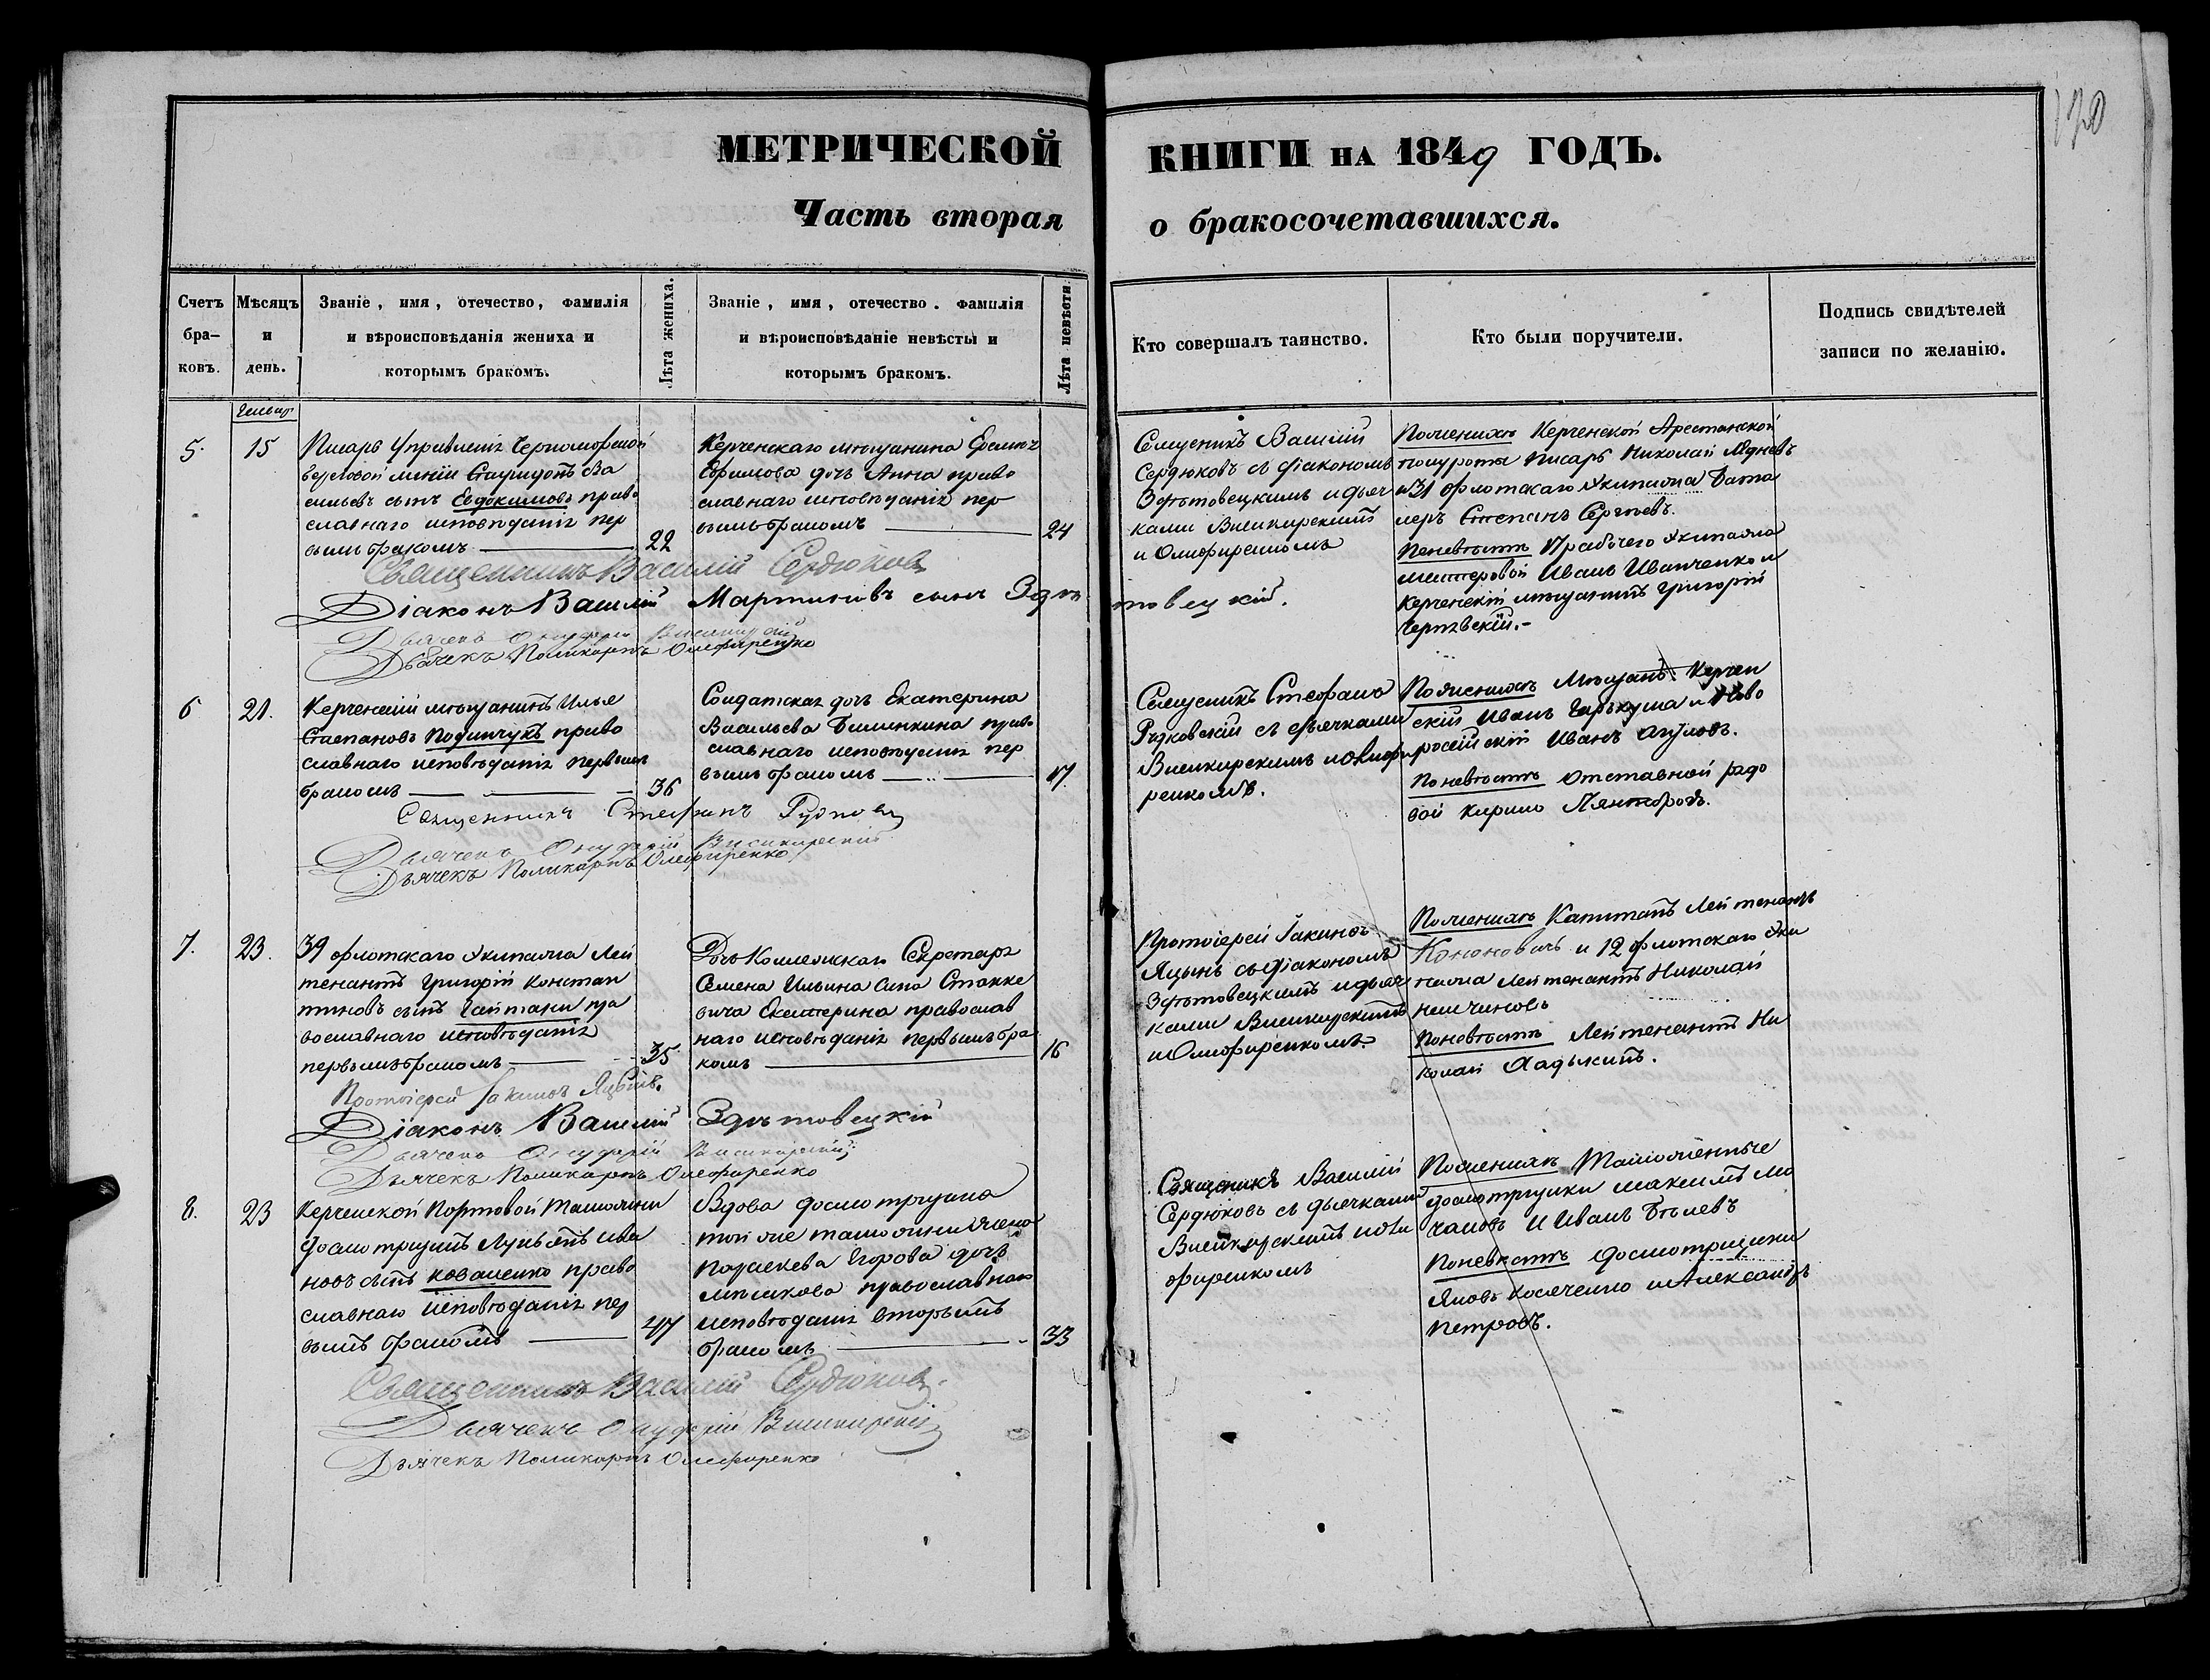 190
МЕТРИЧЕСКОЙ КНИГИ НА 1849 ГОДЪ.
Часть вторая о бракосочетавшихся.
Счетъ бра-ковъ.
Мѣсяцъ и день.
Званіе, имя, отечество, фамилія
и вѣроисповѣданія жениха и
которымъ бракомъ.
Лѣта жениха.
Званіе, имя, отечество. фамилія
и вѣроисповѣданіе невѣсты и
которымъ бракомъ.
Лѣта невѣсти
Кто совершалъ таинство.
Кто были поручители.
Подпись свидѣтелей
записи по желанію.
5.
15
Писарь Управленія Черноморской
береговой линіи Спиридонъ Ва
сильевъ сынъ Евдокимовъ право
славнаго исповѣданія пер
вымъ бракомъ
22
Керченскаго мѣщанина
Ефимова дочь Анна право
славнаго исповѣданія пер
вымъ бракомъ
24
Священникъ Василій
Сердюковъ съ діакономъ
Здѣтовецкимъ и дьяч
ками Висикирскимъ
и Олефиренкомъ
По женихѣ Керченской Арестанской
полуроты писарь Николай
и 31 флотскаго Экипажа Бата
леръ Степанъ Сергѣевъ.
По невѣстѣ 17 рабочего Экипажа
мастеровой Иванъ Иванченко и
Керченскій мѣщанинъ Григорій
Чернявскій.-
Священникъ Василій Сердюковъ
Діаконъ Василій Мартиновъ сынъ Здѣтовецкій.
Дьячекъ Онуфрій Висикирскій
Дьячекъ Поликарпъ Олефиренко
6
21.
Керченскій мѣщанинъ Илья
Степановъ Подинчукъ право
славнаго исповѣданія первымъ
бракомъ
36
Солдатская дочь Екатерина
Васильева Билинкина право
славнаго исповѣданія пер
вымъ бракомъ
17.
Священникъ Стефанъ
Рудковскій съ дьячками
Висикирскимъ и Олефи
ренкомъ.
По женихѣ Мѣщанъ Керчен
скій Иванъ Гаркуша и Ново
россійскій Иванъ
По невѣстѣ отставной рядо
вой Кирило
Священникъ Стефанъ
Дьячекъ Онуфрій Висикирскій
Дьячекъ Поликарпъ Олефиренко
7.
23.
39 флотскаго Экипажа Лей
тенантъ Григорій Констан
тиновъ сынъ Гайтани пра
вославнаго исповѣданія
первымъ бракомъ
35
Дочь Коллежскаго Секретаря
Семена Ильина сына Станке
вича Екатерина православ
наго исповѣданія первымъ бра
комъ
16
Протоіерей Іакинѳъ
Яцынъ съ діакономъ
Здѣтовецкимъ и дьяч
ками Висикирскимъ
и Олефиренкомъ
По женихѣ Капитанъ Лейтенантъ
Кононовичъ и 12 флотскаго Эки
пажа Лейтенантъ Николай
По невѣстѣ Лейтенантъ Ни
колай
Протоіерей Іакинѳъ Яцынъ.
Діаконъ Василій Здѣтовецкій
Дьячекъ Онуфрій Висикирскій
Дьячекъ Поликарпъ Олефиренко
8.
23
Керченской Портовой Таможни
Досмотрщикъ Лукьянъ Ива
новъ сынъ Коваленко право
славнаго исповѣданія пер
вымъ бракомъ
47
Вдова досмотрщика
той же таможни
Параскева Егорова дочь
православнаго
исповѣданія вторымъ
бракомъ
33
Священникъ Василій
Сердюковъ съ дьячками
Висикирскимъ и Оле
фиренкомъ
По женихѣ Таможенные
досмотрщики Максимъ Мо
чаловъ и Иванъ Бѣлевъ
По невѣстѣ досмотрщики
Яковъ Косяченко и Александръ
Петровъ.
Священникъ Василій Сердюковъ.
Дьячекъ Онуфрій Висикирскій
Дьячекъ Поликарпъ Олефиренко